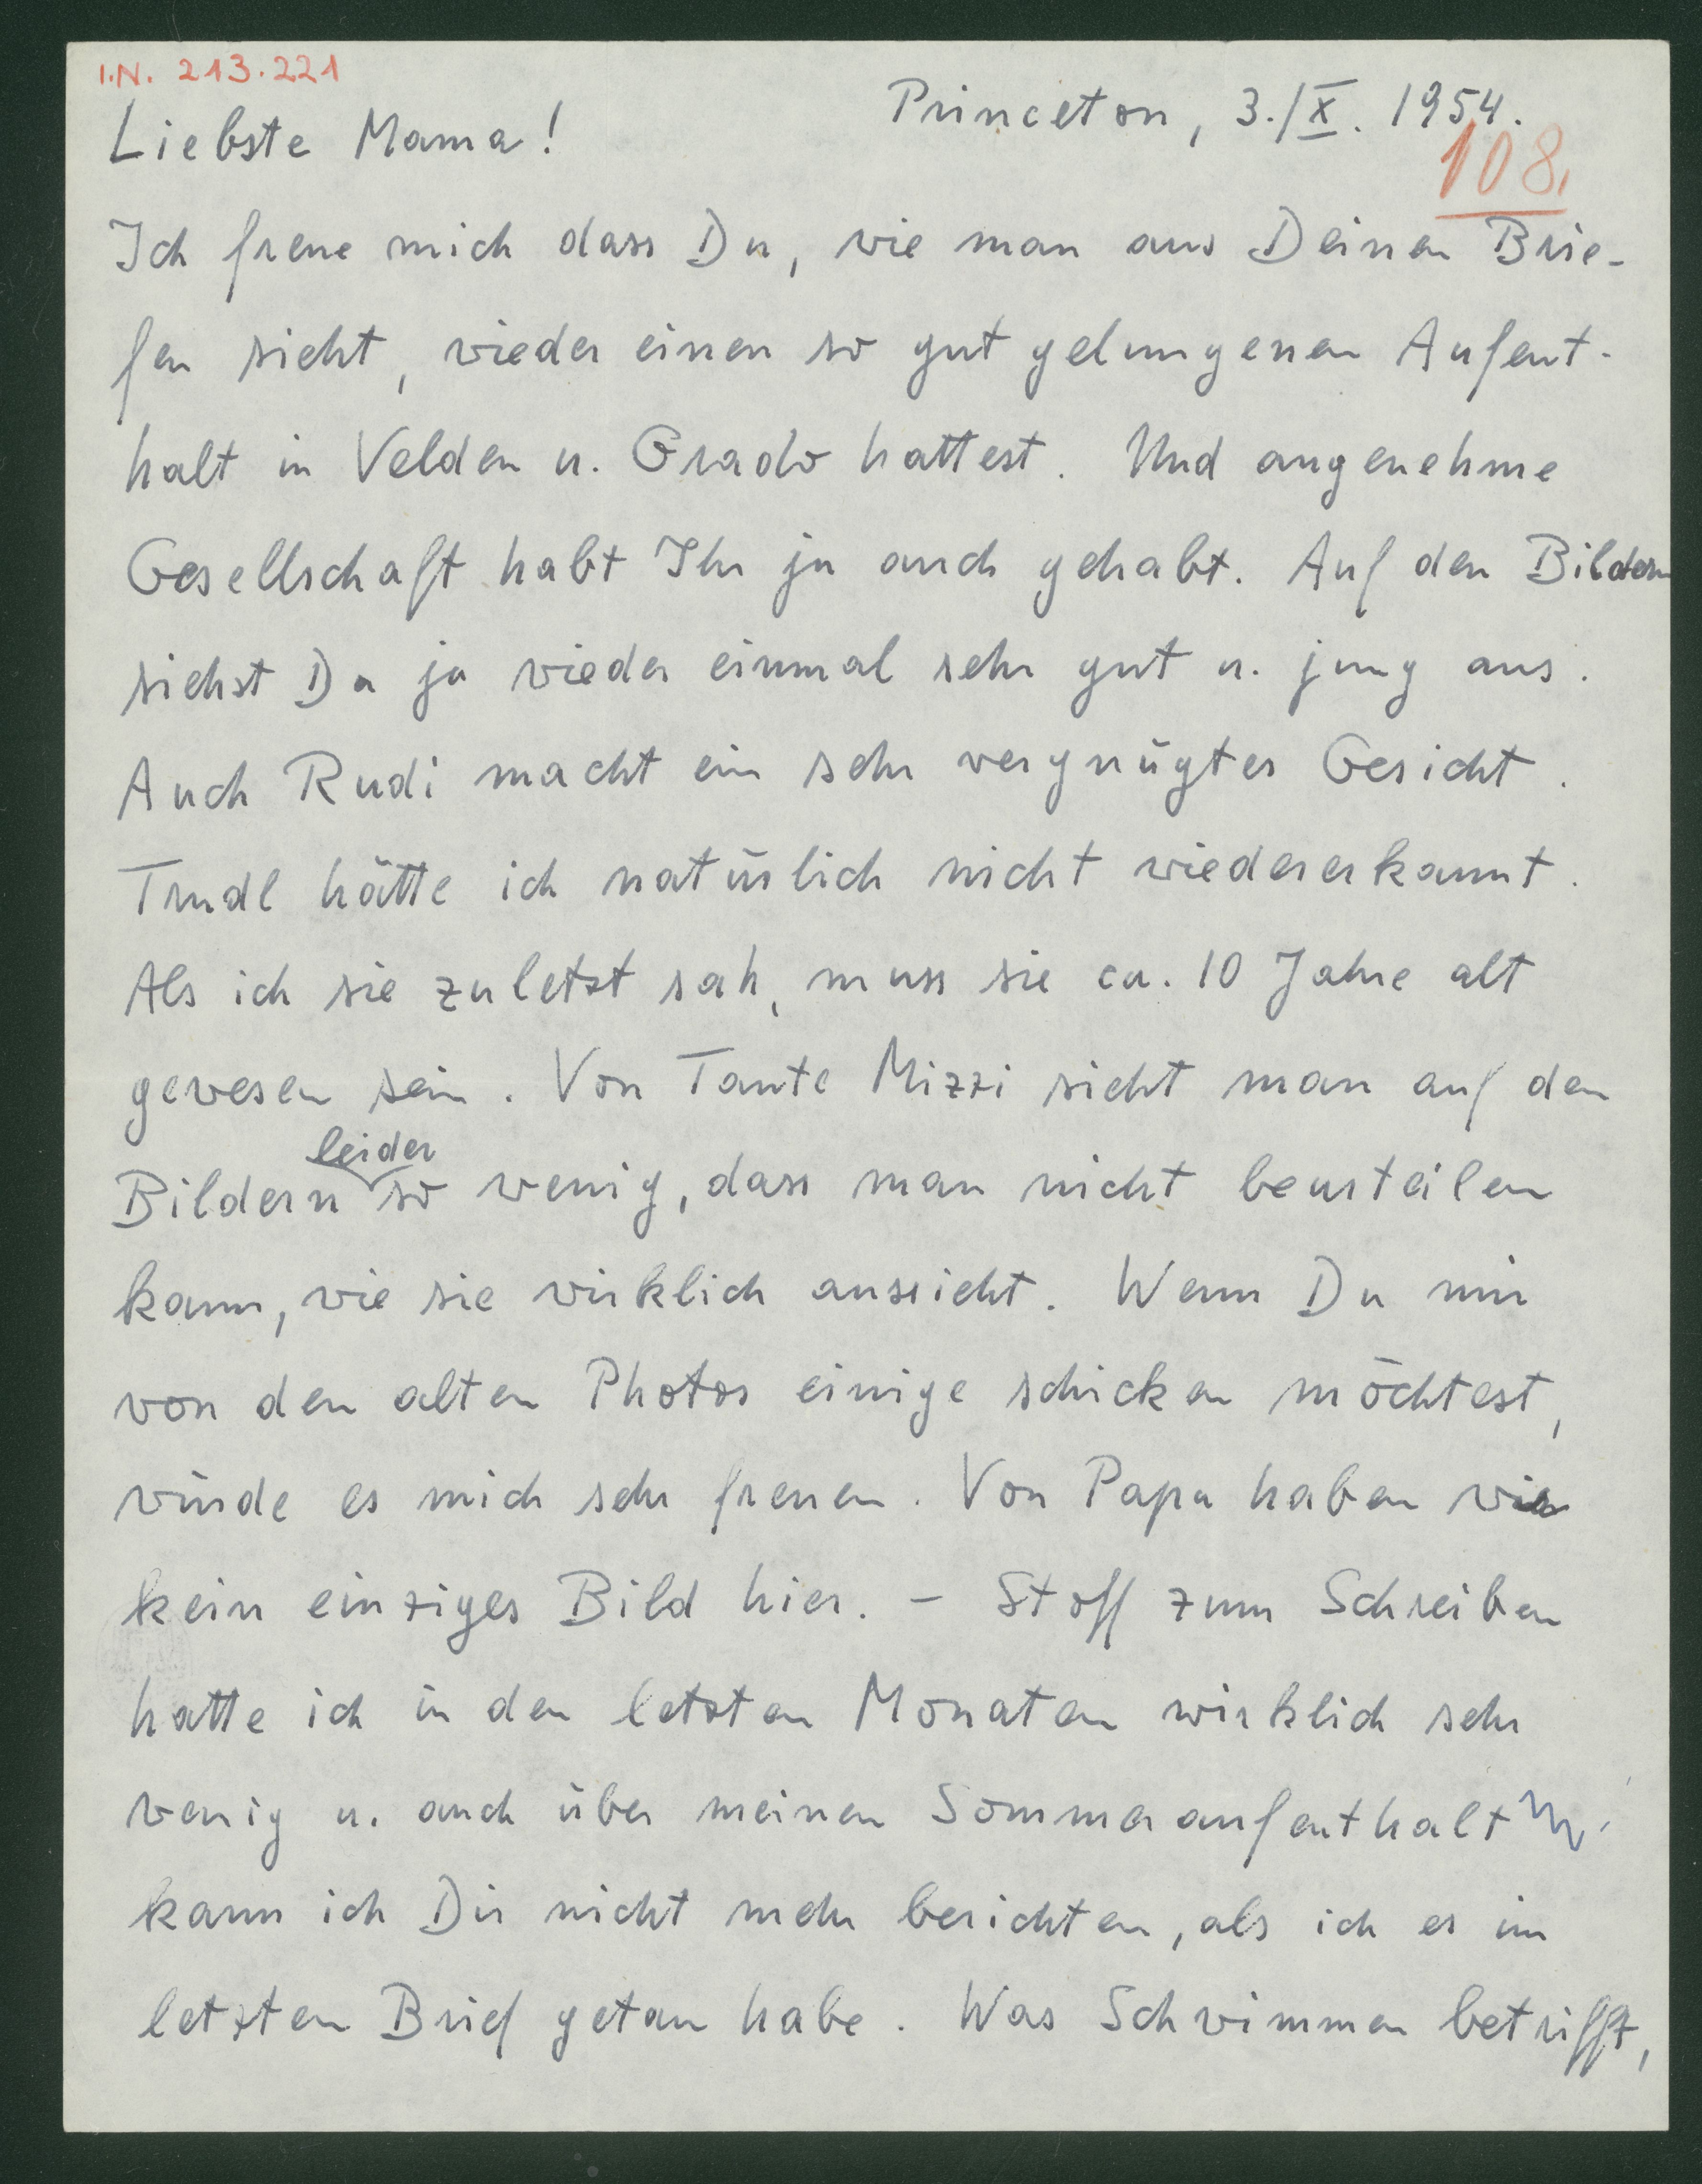 I.N. 213.221
Princeton, 3./X. 1954.
108.
Liebste Mama!
Ich freue mich dass Du, wie man aus Deinen Brie-
fen sieht, wieder einen so gut gelungenen Aufent-
halt in Velden u. Grado hattest. Und angenehme
Gesellschaft habt Ihr ja auch gehabt. Auf den Bildern
siehst Du ja wieder einmal sehr gut u. jung aus.
Auch Rudi macht ein sehr vergnügtes Gesicht.
Trudl hätte ich natürlich nicht wiedererkannt.
Als ich sie zuletzt sah, muss sie ca. 10 Jahre alt
gewesen sein. Von Tante Mizzi sieht man auf den
leider
Bildern so wenig, dass man nicht beurteilen
kann, wie sie wirklich aussieht. Wenn Du mir
von den alten Photos einige schicken möchtest,
würde es mich sehr freuen. Von Papa haben wir
kein einziges Bild hier. – Stoff zum Schreiben
hatte ich in den letzten Monaten wirklich sehr
wenig u. auch über meinen Sommeraufenthalt
kann ich Dir nicht mehr berichten, als ich es im
letzten Brief getan habe. Was Schwimmen betrifft,